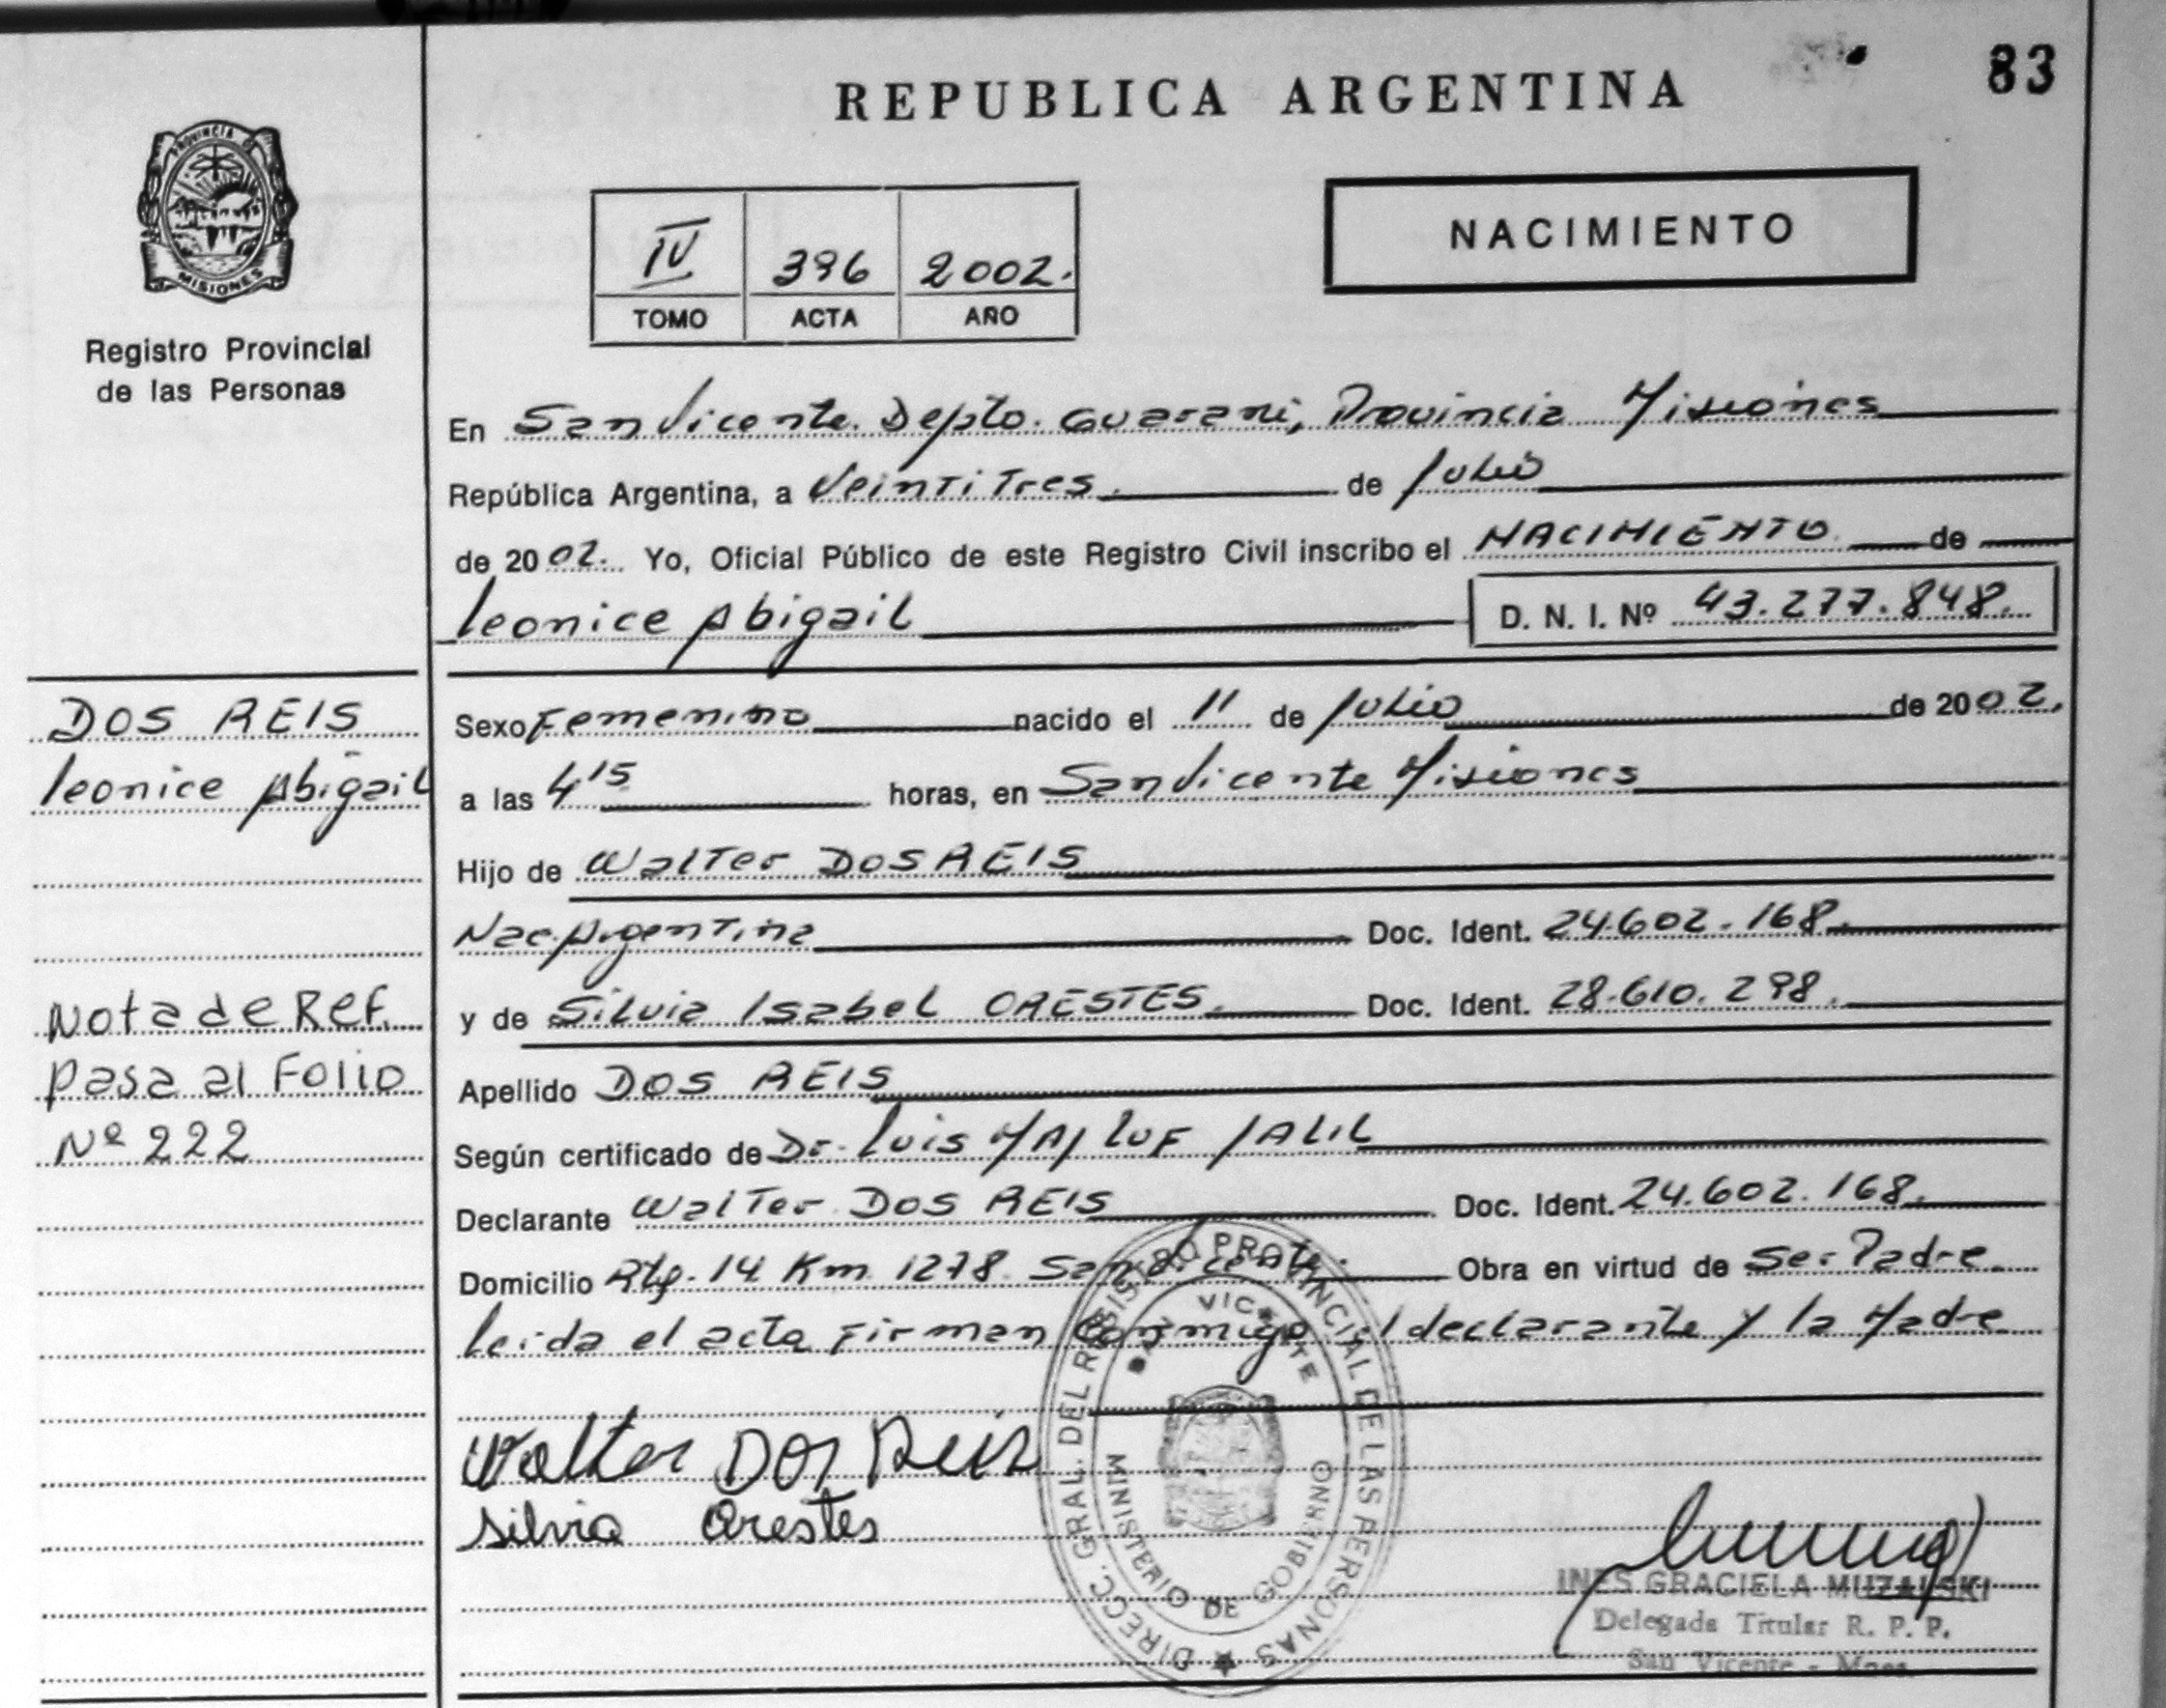 83
REPUBLICA ARGENTINA
PROVINCIA DE
MISIONES
Registro Provincial
de las Personas
IV 396 2002.
TOMO ACTA AÑO
NACIMIENTO
En San Vicente. Depto. Guarani, Provincia Misiones
República Argentina, a Veintitres. de Julio
de 2002. Yo, Oficial Público de este Registro Civil inscribo el NACIMIENTO de
Leonice Abigail D. N. I. Nº 43.277.848.
DOS REIS
Leonice Abigail
Nota de Ref.
Pasa al Folio
Nº 222
Sexo Femenino nacido el 11 de Julio de 2002.
a las 4 15 horas, en San Vicente Misiones
Hijo de Walter DOS REIS
Nac. Argentina Doc. Ident. 24.602.168.
y de Silvia Isabel ORESTES. Doc. Ident. 28.610.298.
Apellido DOS REIS
Según certificado de Dr. Luis MAJLUF JALIL
Declarante Walter DOS REIS Doc. Ident. 24.602.168.
Domicilio Rta. 14 Km 1278 San Vicente. Obra en virtud de Ser Padre
Leida el acta Firman Conmigo el declarante y la Madre
Walter Dos Reis
Silvia Orestes
DIRECC. GRAL. DEL REGISTRO PROVINCIAL DE LAS PERSONAS
SAN VICENTE
MINISTERIO DE GOBIERNO
INES GRACIELA MUZALSKI
Delegada Titular R. P. P.
San Vicente - Mnes.